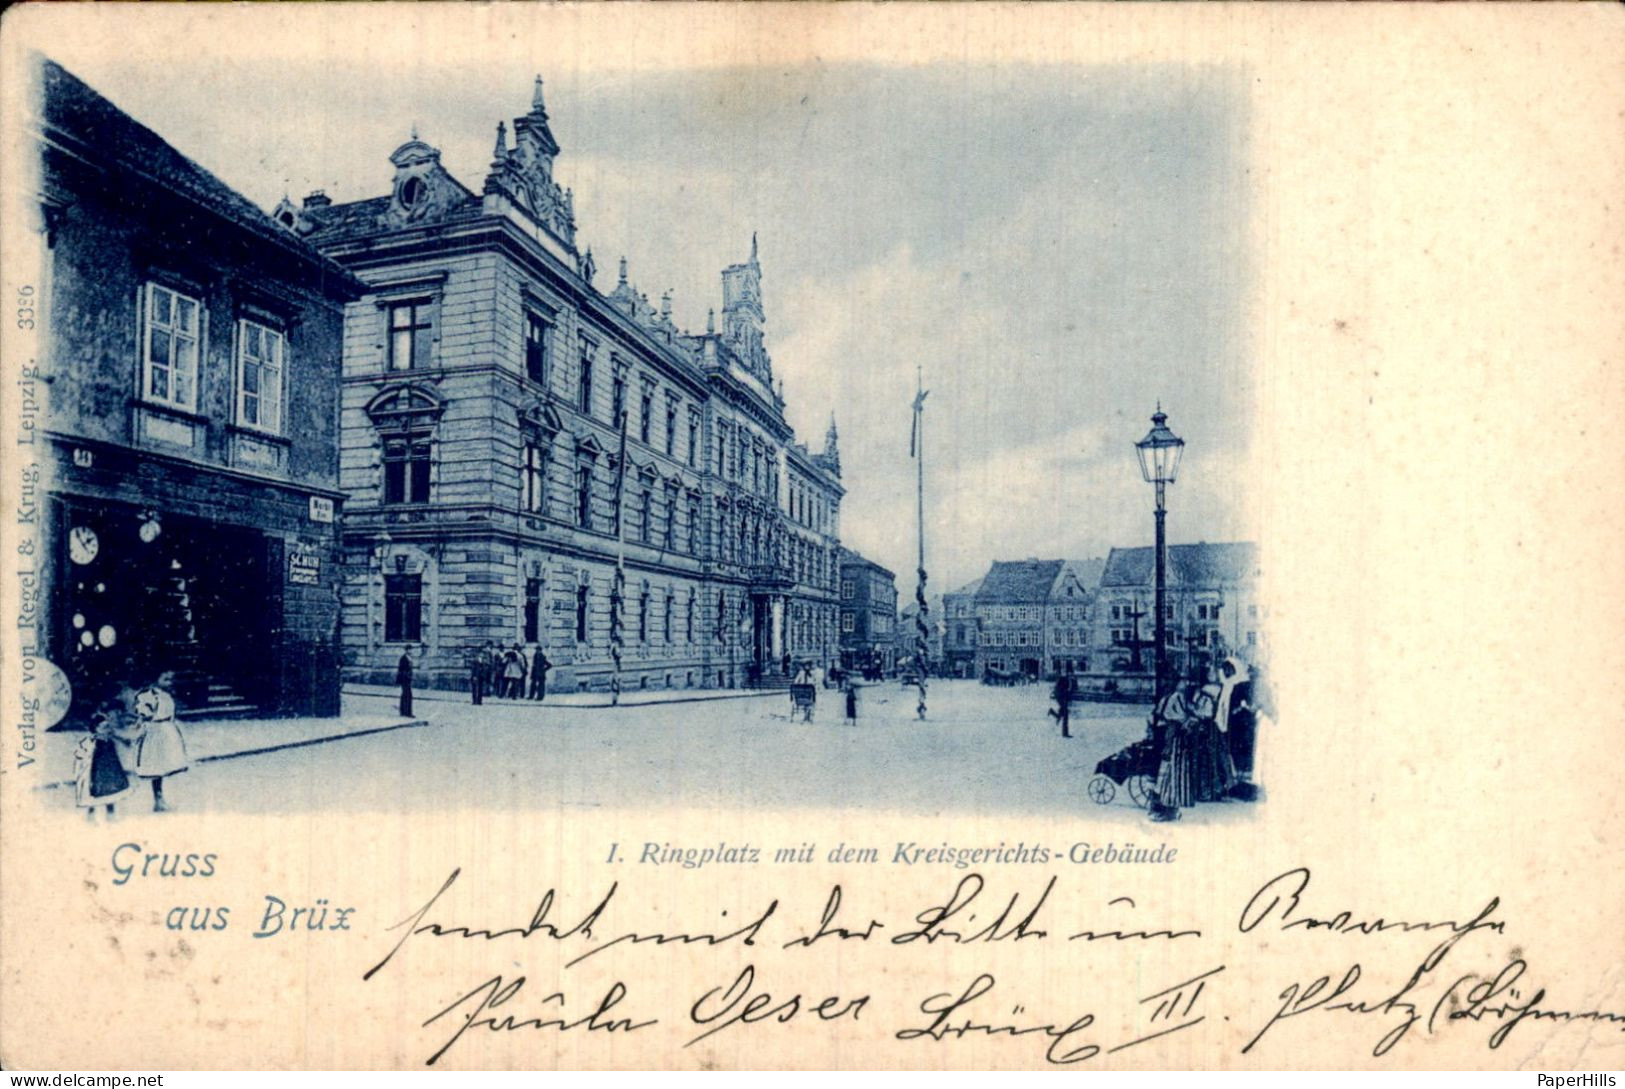 Verlag von Regel & Krug, Leipzig. 3386
10
SCHUH
Gruss
aus Brüx
I. Ringplatz mit dem Kreisgerichts-Gebäude
sendet mit der Bitte um Revanche
Paula Oeser Brüx III. Platz (Böhmen
PaperHills